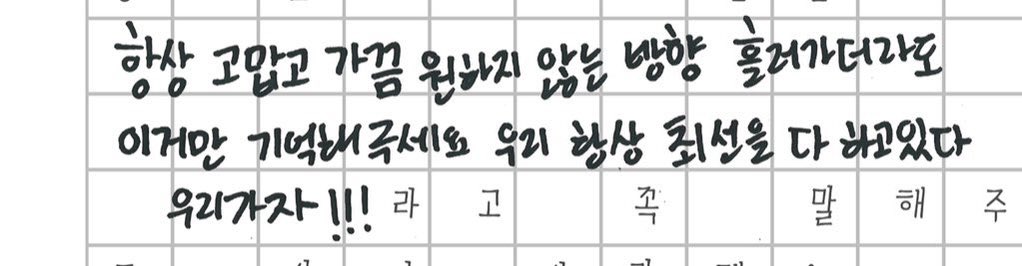 항상 고맙고 가끔 원하지 않는 방향 흘러가더라도
이거만 기억해주세요 우리 항상 최선을 다 하고있다
우리가자!!! 라고 꼭 말해주